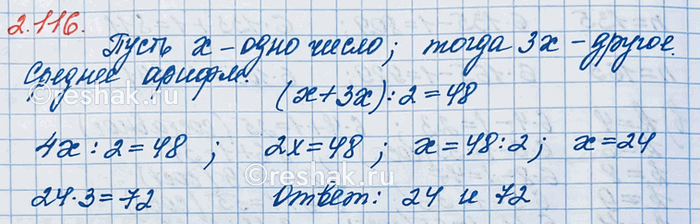 2.116.
Пусть x - одно число; тогда 3x - другое.
Среднее арифм.
(x+3x):2=48
4x:2=48; 2x=48; x=48:2; x=24
24·3=72 Ответ: 24 и 72
©reshak.ru
©reshak.ru
©reshak.ru